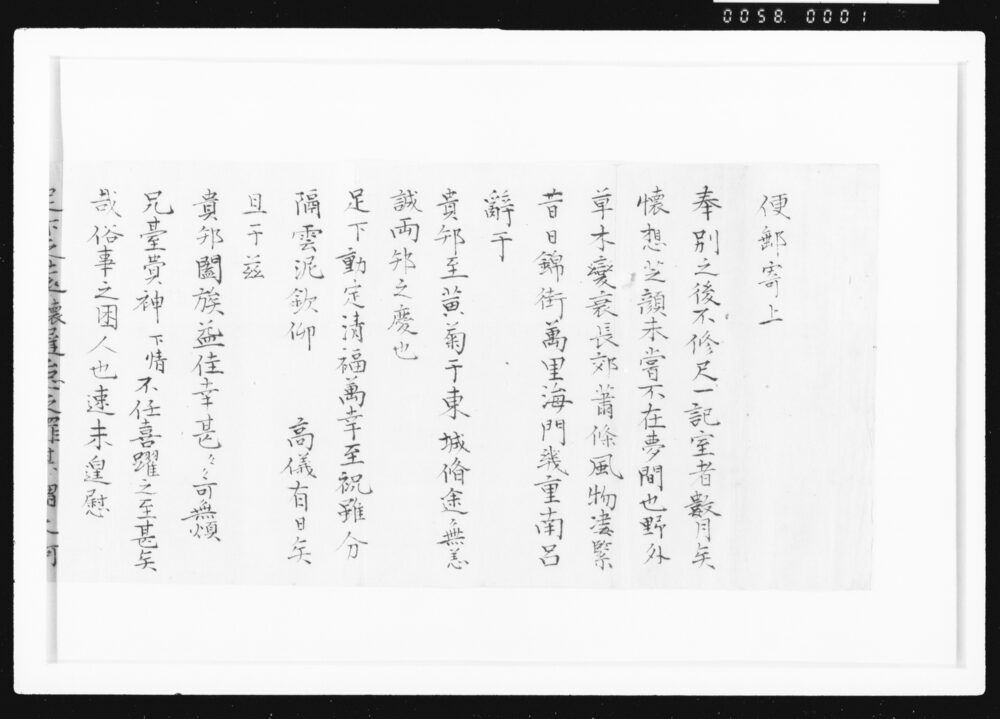 0058. 0001
便郵寄上
奉別之後不修尺一記室者數月矣
懐想芝顔未嘗不在夢間也野外
草木變衰長郊蕭條風物凄緊
昔日錦街萬里海門幾重南呂
辭于
貴邦至黄菊于東城脩途無恙
誠両邦之慶也
足下動定清福萬幸至祝雖分
隔雲泥欽仰 高儀有日矣
且于茲
貴邦闔族益佳幸甚々々可無煩
兄臺貴神 下情不任喜躍之至甚矣
哉俗事之困人也速未遑慰